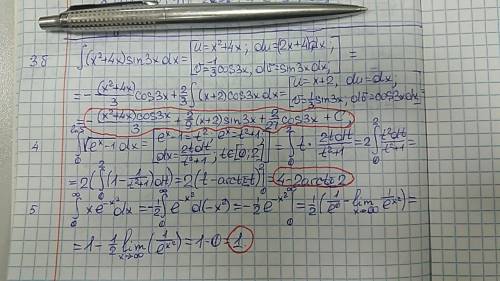 3б ∫(x²+4x)sin3xdx = [u=x²+4x, du=(2x+4)dx, v=-1/3 cos3x, dv=sin3xdx,] =
= -(x²+4x)/3 cos3x + 2/3 ∫(x+2)cos3xdx = [u=x+2, du=dx, v=1/3 sin3x, dv=cos3xdx] =
= -(x²+4x)cos3x/3 + 2/9 (x+2)sin3x + 2/27 cos3x + C,
4 ∫√(eˣ-1) dx = [eˣ-1=t², eˣ=t²+1, dx=2tdt/(t²+1), t∈[0;2]] = ∫₀² t · 2tdt/(t²+1) = 2∫₀² t²dt/(t²+1) =
= 2(∫₀² (1-1/(t²+1))dt) = 2(t-arctgt)|₀² = 4-2arctg2
5 ∫₀^∞ xe^(-x²)dx = -1/2 ∫₀^∞ e^(-x²)d(-x²) = -1/2 e^(-x²)|₀^∞ = 1/2 (1/e⁰ - lim x→∞ 1/e^(x²)) =
= 1 - 1/2 lim x→∞ (1/e^(x²)) = 1-0 = 1